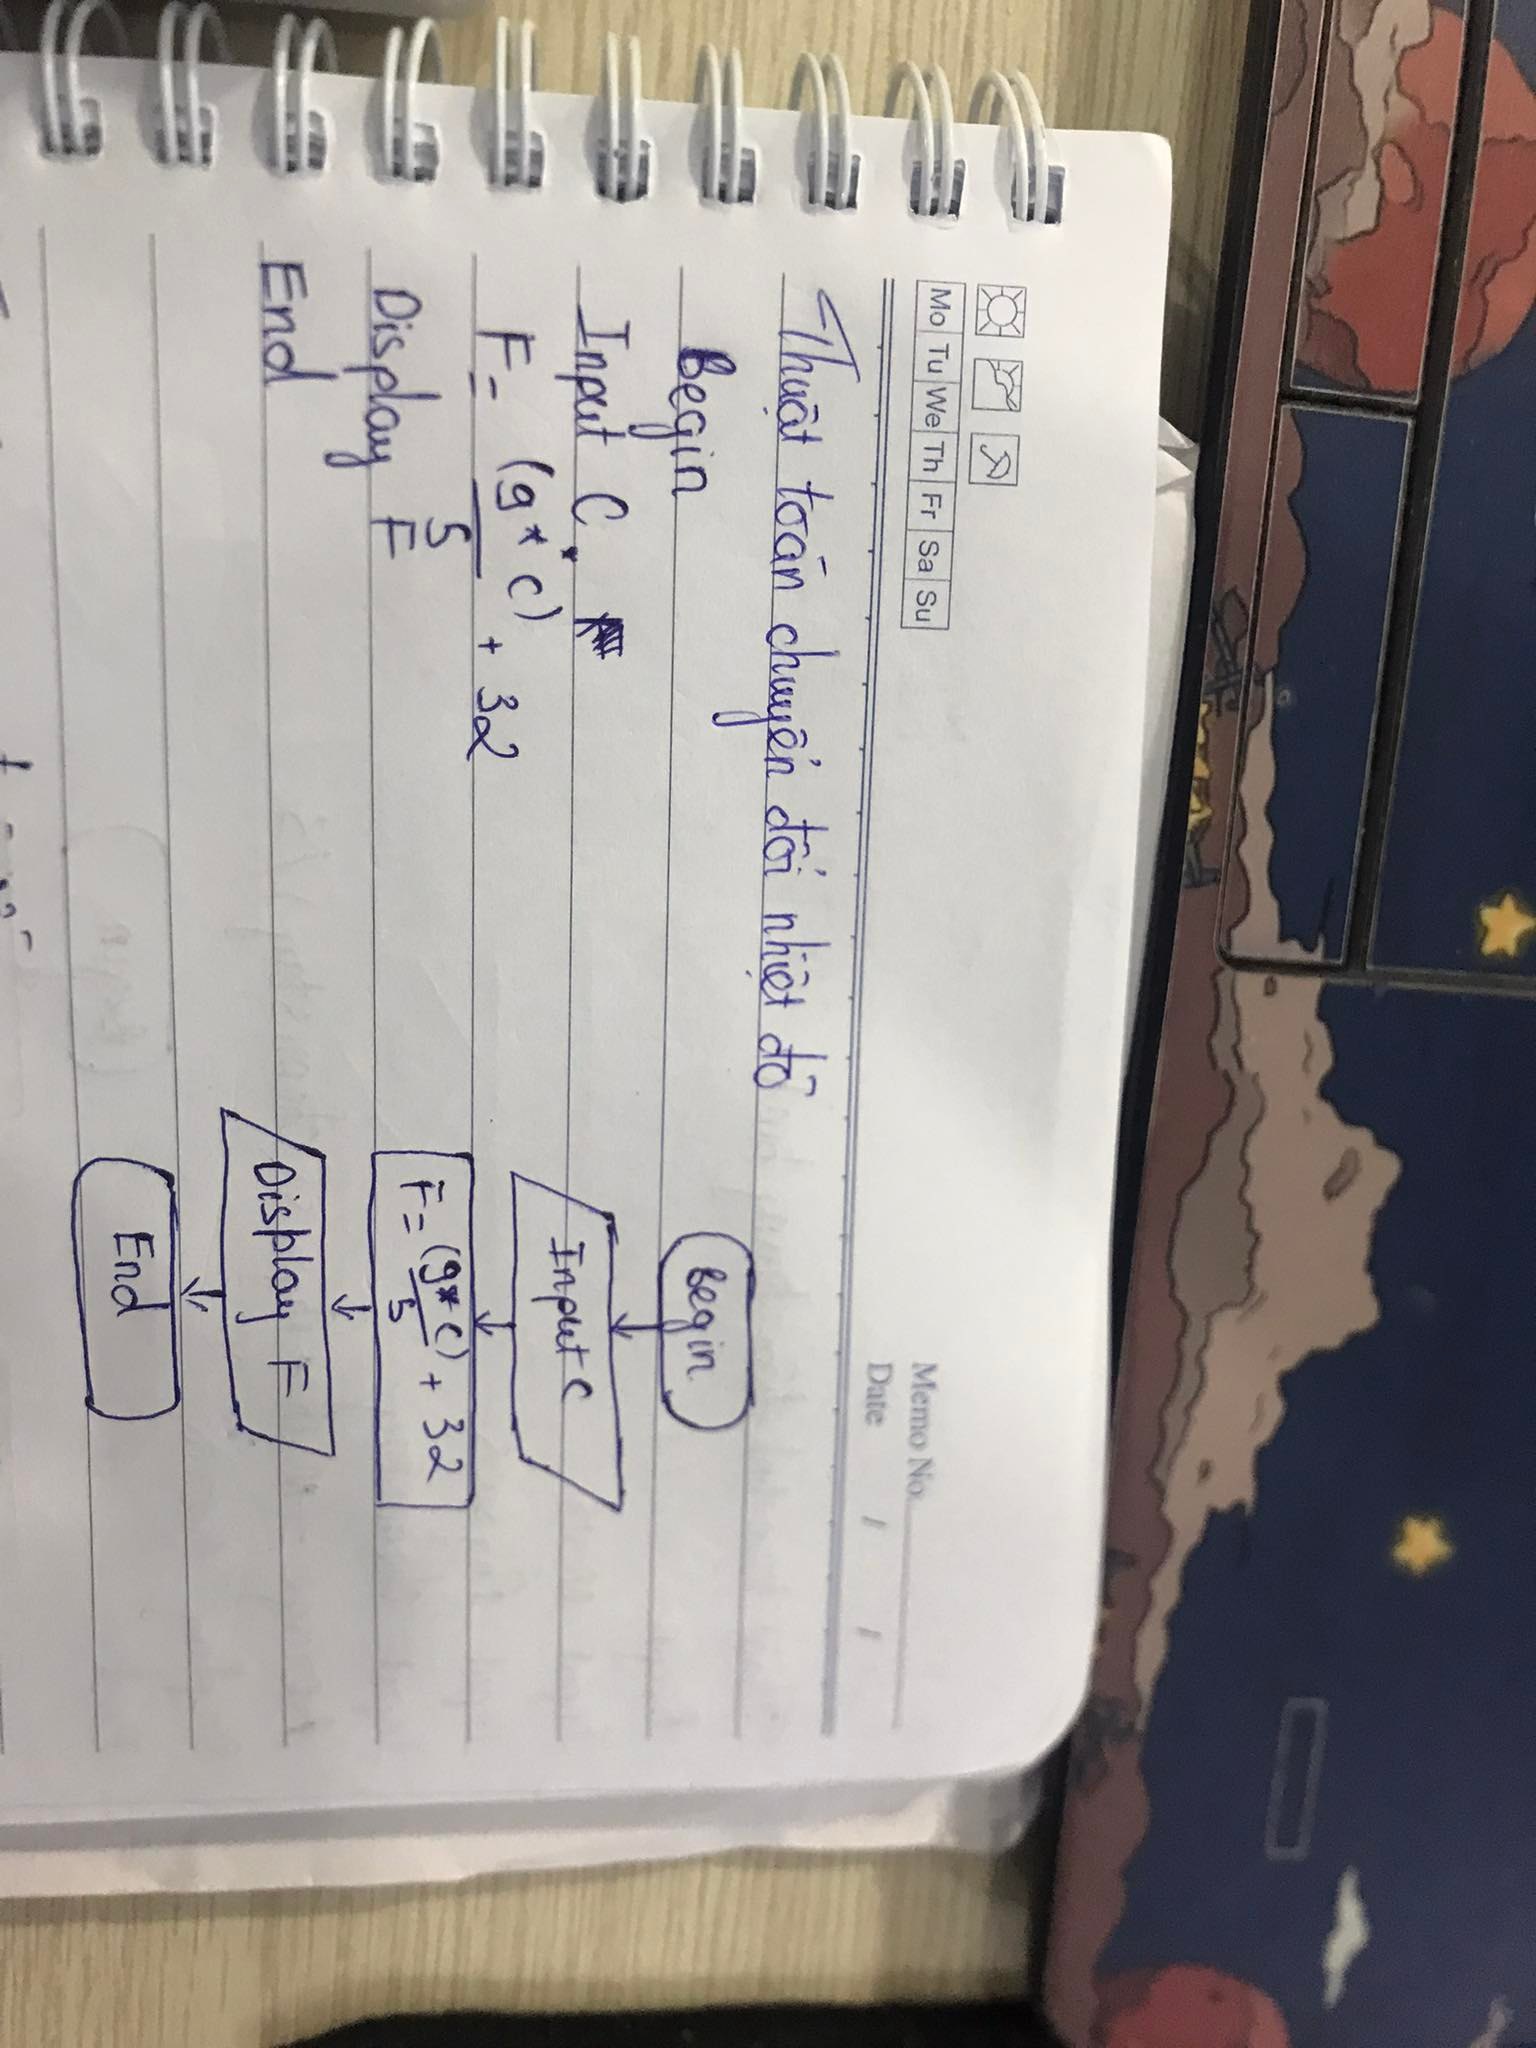 Memo No.
Mo Tu We Th Fr Sa Su
Date / /
Thuật toán chuyển đổi nhiệt độ
Begin
Input C
F = (9*C)
5
+ 32
Display F
End
Begin
Input C
F = (9*C)
5
+ 32
Display F
End